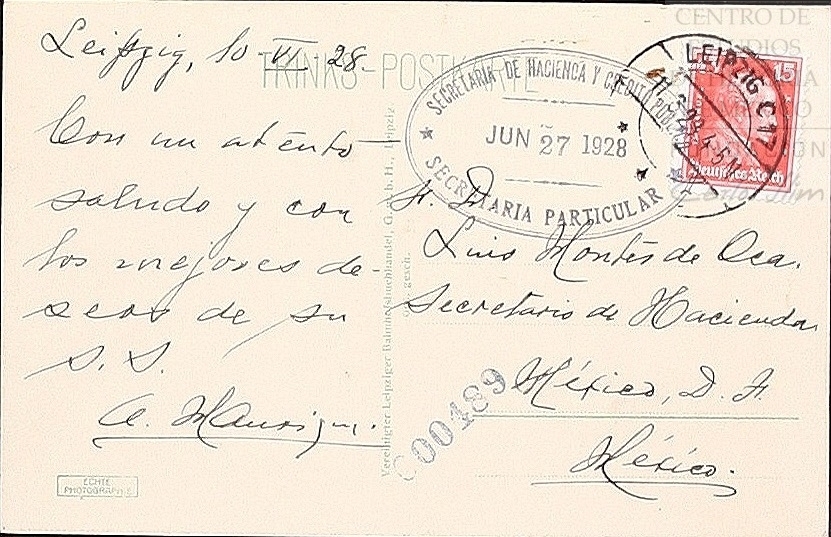 Leipzig, 10 - VI - 28.
Con un atento
saludo y con
los mejores de-
seos de su
S. S.
TRINKS-POSTKARTE
SECRETARÍA DE HACIENDA Y CRÉDITO PÚBLICO
JUN 27 1928
SECRETARIA PARTICULAR
LEIPZIG C 17
15
Deutsches Reich
CENTRO DE
ESTUDIOS
Sr. D.
Luis Montes de Oca.
Secretario de Hacienda
México, D. F.
México.
00489
Vereinigter Leipziger Bahnhofsbuchhandel, G. m. b. H., Leipzig.
ges. gesch.
ECHTE
PHOTOGRAPHIE